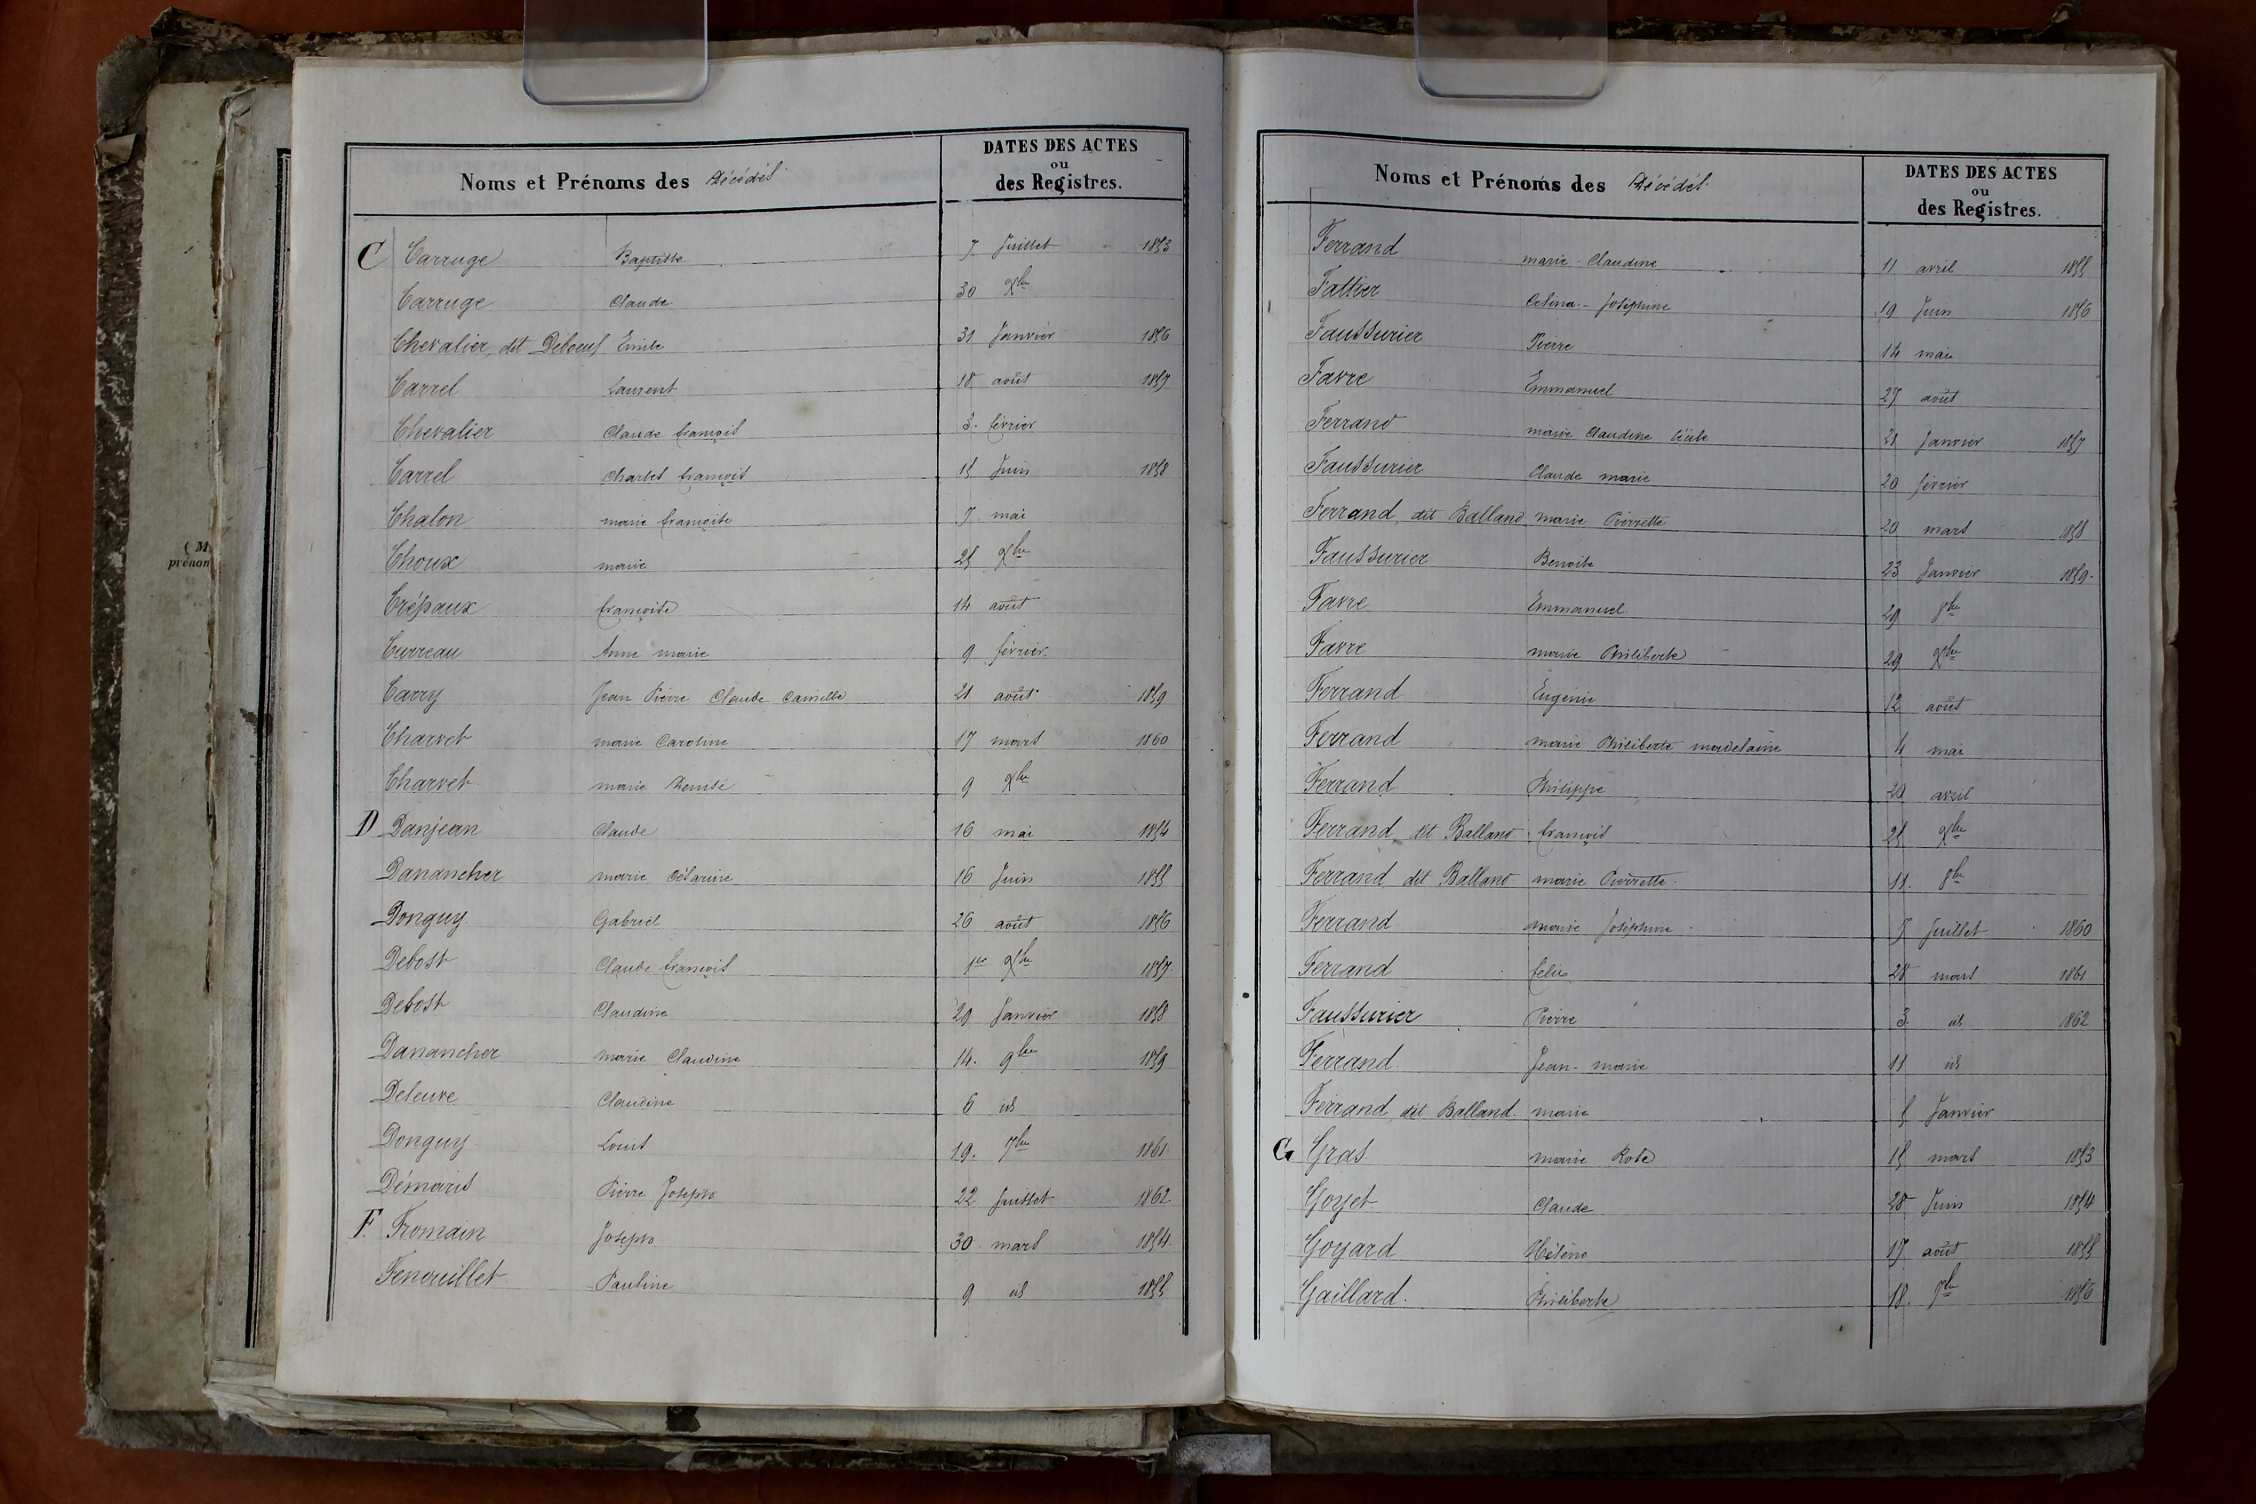 (M
prénon
Noms et Prénoms des Décédés
DATES DES ACTES
ou
des Registres.
C Carruge Baptiste 7 Juillet 1853
Carruge Claude 30 Xbre
Chevalier dit Deboeuf Emile 31 Janvier 1856
Carrel Laurent 18 août 1857
Chevalier Claude françois 3 février
Carrel Charles françois 15 Juin 1858
Chalon marie françoise 7 mai
Choux marie 25 Xbre
Crépaux françoise 14 août
Curreau Anne marie 9 février
Carry Jean Pierre Claude Camille 21 août 1859
Charvet marie Caroline 17 mars 1860
Charvet marie Denise 9 Xbre
D Danjean Claude 16 mai 1854
Danancher marie Césarine 16 Juin 1855
Donguy Gabriel 26 août 1856
Debost Claude françois 1er Xbre 1857
Debost Claudine 29 Janvier 1858
Danancher marie Claudine 14 9bre 1859
Deleuve Claudine 6 id
Donguy Louis 19 7bre 1861
Démaris Pierre Joseph 22 Juillet 1862
F. Fromain Joseph 30 mars 1854
Fenouillet Pauline 9 id 1855
Noms et Prénoms des Décédés
DATES DES ACTES
ou
des Registres.
Ferrand marie-Claudine 11 avril 1855
Fattier Celina-Joséphine 19 Juin 1856
Faussurier Pierre 14 mai
Favre Emmanuel 27 août
Ferrand marie Claudine Cécile 21 Janvier 1857
Faussurier Claude marie 20 février
Ferrand dit Balland marie Pierrette 20 mars 1858
Faussurier Benoite 23 Janvier 1859
Favre Emmanuel 29 8bre
Favre marie Philiberte 29 Xbre
Ferrand Eugénie 12 août
Ferrand marie Philiberte madelaine 4 mai
Ferrand Philippe 20 avril
Ferrand dit Balland françois 25 Xbre
Ferrand dit Balland marie Pierrette 11 8bre
Ferrand marie Joséphine Juillet 1860
Ferrand felix 28 mars 1861
Faussurier Pierre 3 id 1862
Ferrand Jean-marie 11 id
Ferrand dit Balland marie 5 Janvier
G Gras marie Rose 15 mars 1853
Goyet Claude 28 Juin 1854
Goyard Hélène 17 août 1855
Gaillard Philiberte 18 1856